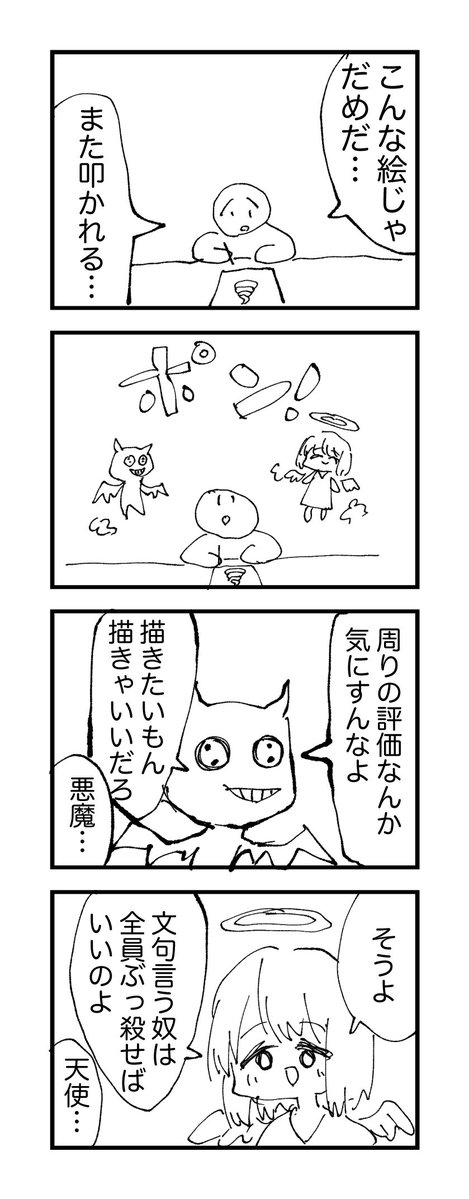 こんな絵じゃ
だめだ…
また叩かれる…
ポン!
周りの評価なんか
気にすんなよ
描きたいもん
描きゃいいだろ
悪魔…
そうよ
文句言う奴は
全員ぶっ殺せば
いいのよ
天使…